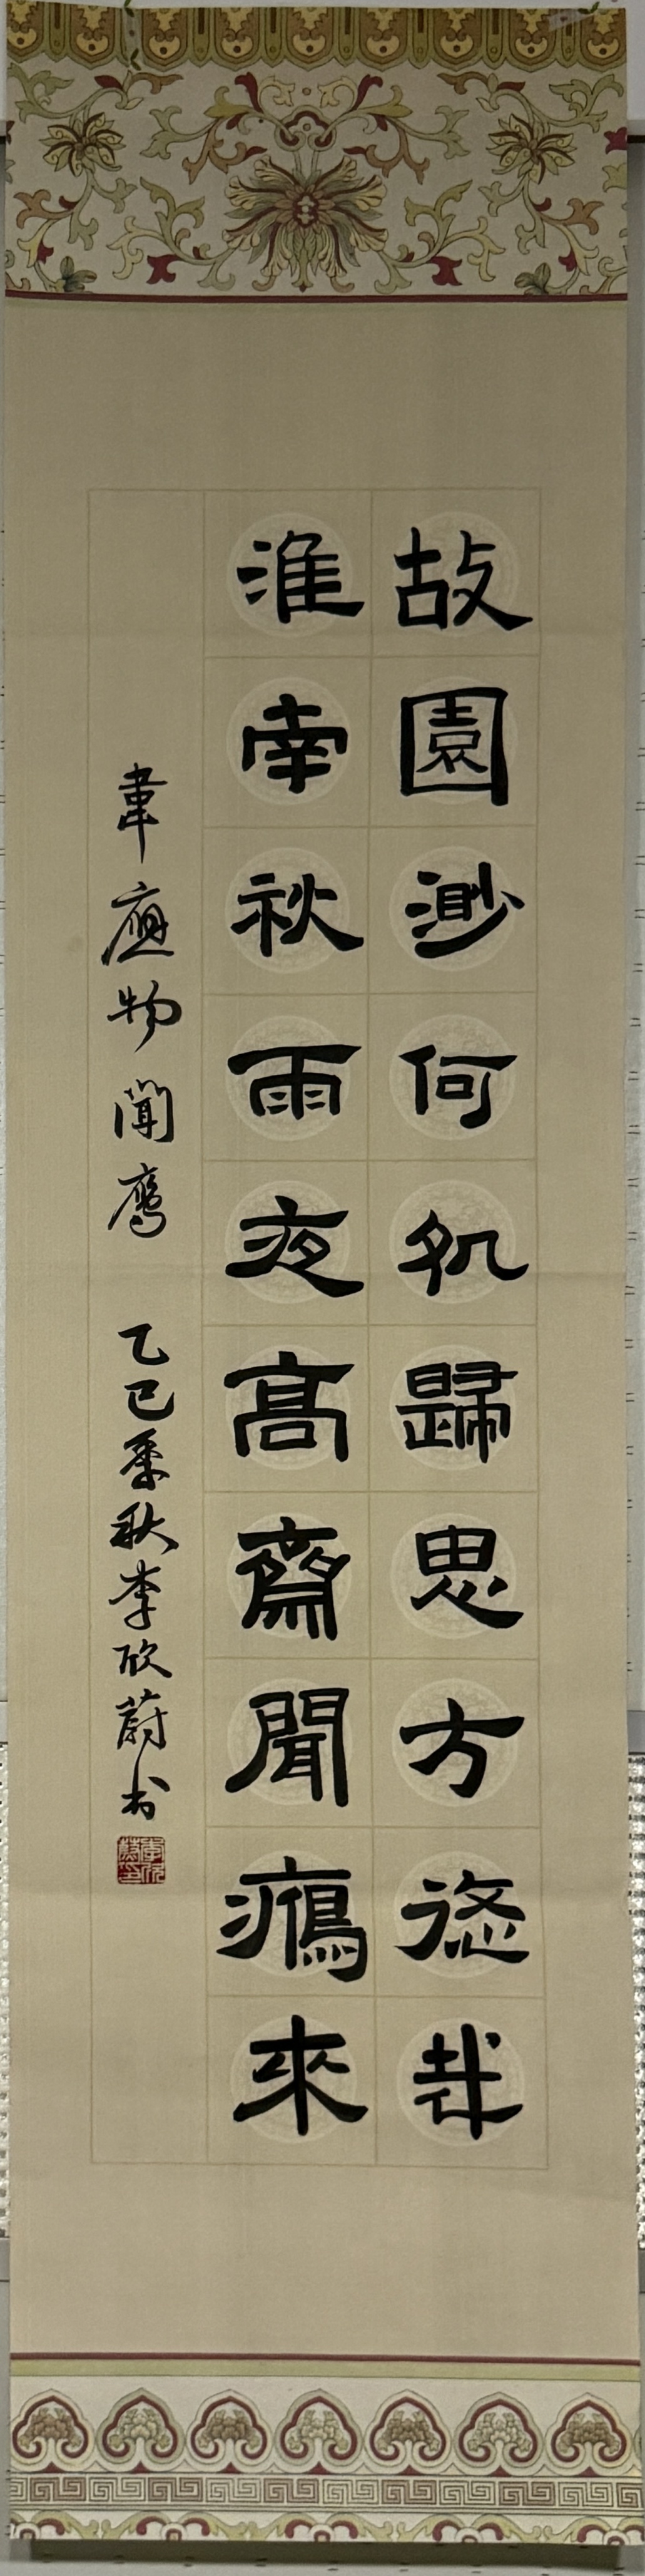 故園渺何処歸思方悠哉
淮南秋雨夜髙齋聞鴈來
韋應物聞鴈 乙巳季秋李欣蔚书